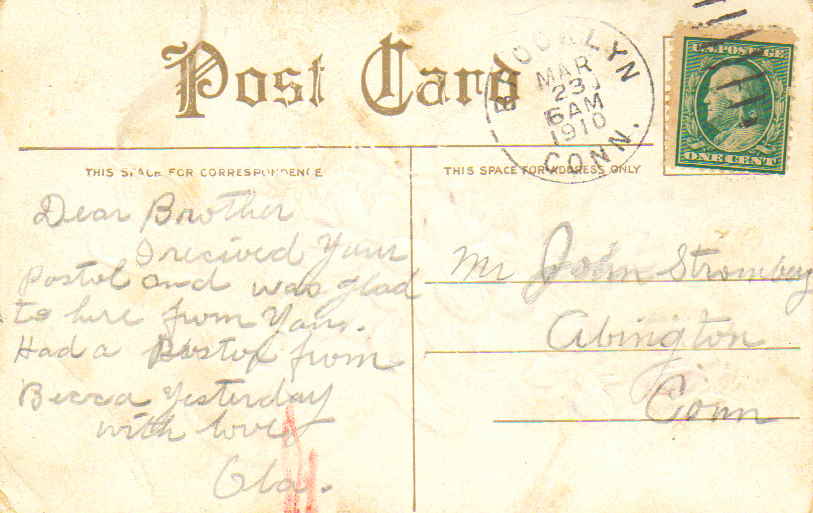 Post Card
BROOKLYN
MAR
23
6 AM
1910
CONN.
U.S. POSTAGE
ONE CENT
THIS SPACE FOR CORRESPONDENCE
THIS SPACE FOR ADDRESS ONLY
Dear Brother
I recived Your
Postol and was glad
to here from You.
Had a Postol from
Becca Yesterday
with love
Ola.
Mr John Stromberg
Abington
Conn